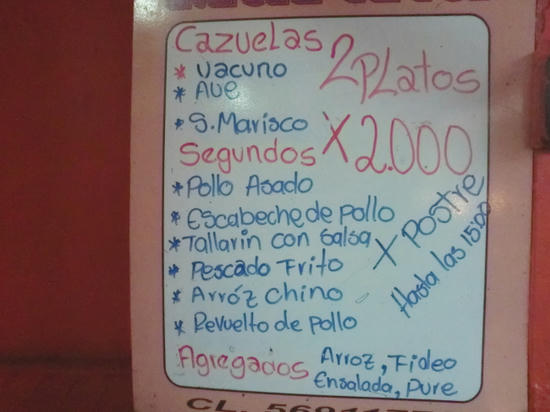 Cazuelas
* Vacuno
* Ave
* S. Marisco
2 Platos
X 2.000
Segundos
* Pollo Asado
* Escabeche de pollo
* Tallarin con Salsa
* Pescado Frito
* Arróz Chino
* Revuelto de pollo
X Postre
Hasta las 15:00
Agregados Arroz, Fideo
Ensalada, Pure
CL.